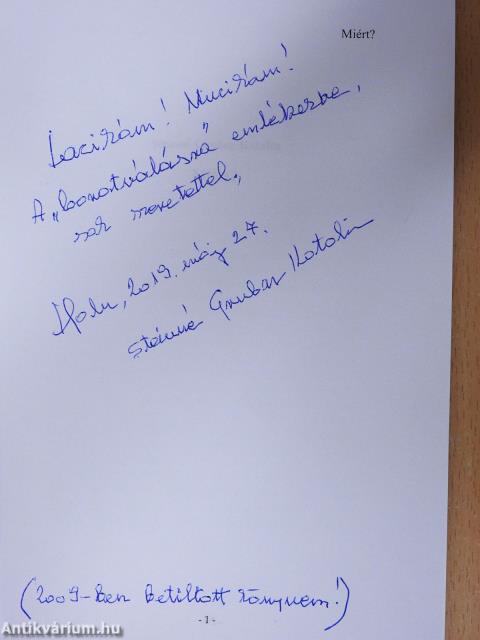 Miért?
Lacikám! Mucikám!
A „barátválásra” emlékezve,
sok szeretettel,
2019. máj 27.
Stánné Gruber Katalin
(2009-ben betiltott könyvem!)
- 1 -
Antikvárium.hu